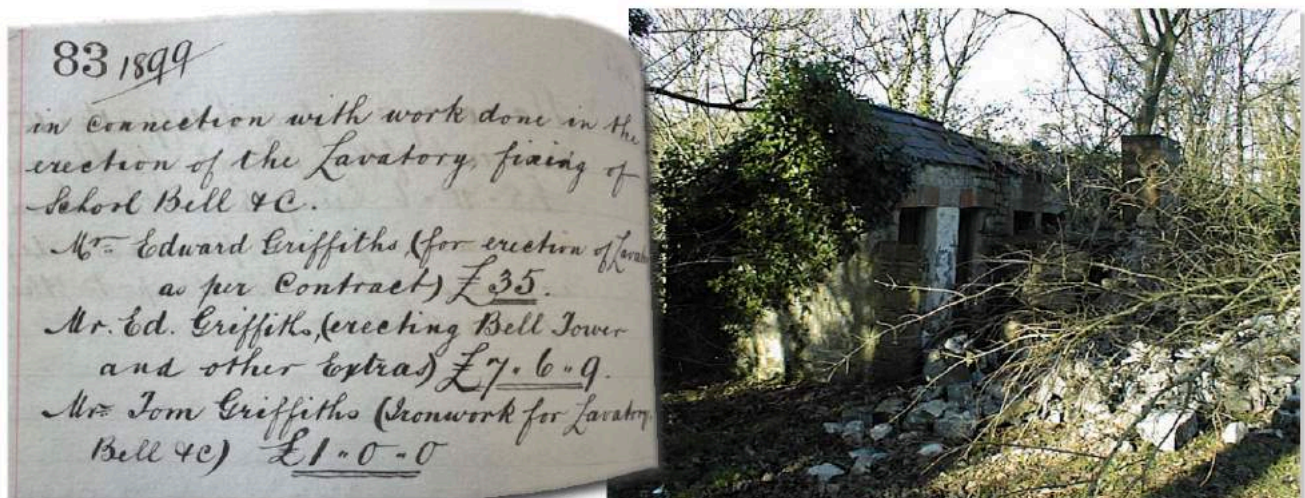 83 1899
in connection with work done in the
erection of the Lavatory, fixing of
School Bell &c.
Mr. Edward Griffiths (for erection of
as per Contract) £35.
Mr. Ed. Griffiths, (erecting Bell Tower
and other Extras) £7 " 6 " 9.
Mr. Tom Griffiths (Ironwork for Lavatory,
Bell &c) £1 " 0 " 0